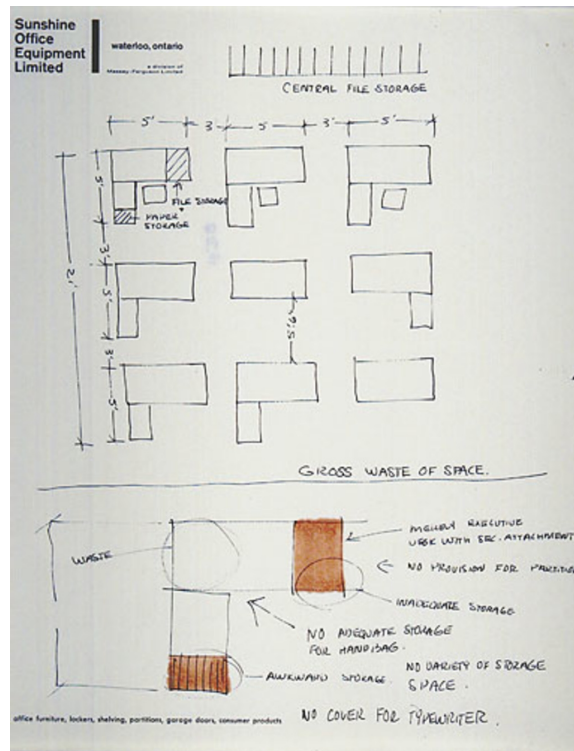 Sunshine
Office
Equipment
Limited
waterloo, ontario
a division of
Massey-Ferguson Limited
CENTRAL FILE STORAGE
5' 3' 5 3' 5'
5'
FILE STORAGE
PAPER
STORAGE
3'
21'
5'
3'
5'
GROSS WASTE OF SPACE.
WASTE
MERELY EXECUTIVE
DESK WITH SEC. ATTACHMENT
NO PROVISION FOR PARTITI
INADEQUATE STORAGE
NO ADEQUATE STORAGE
FOR HANDBAG.
AWKWARD STORAGE.
NO VARIETY OF STORAGE
SPACE.
office furniture, lockers, shelving, partitions, garage doors, consumer products
NO COVER FOR TYPEWRITER.